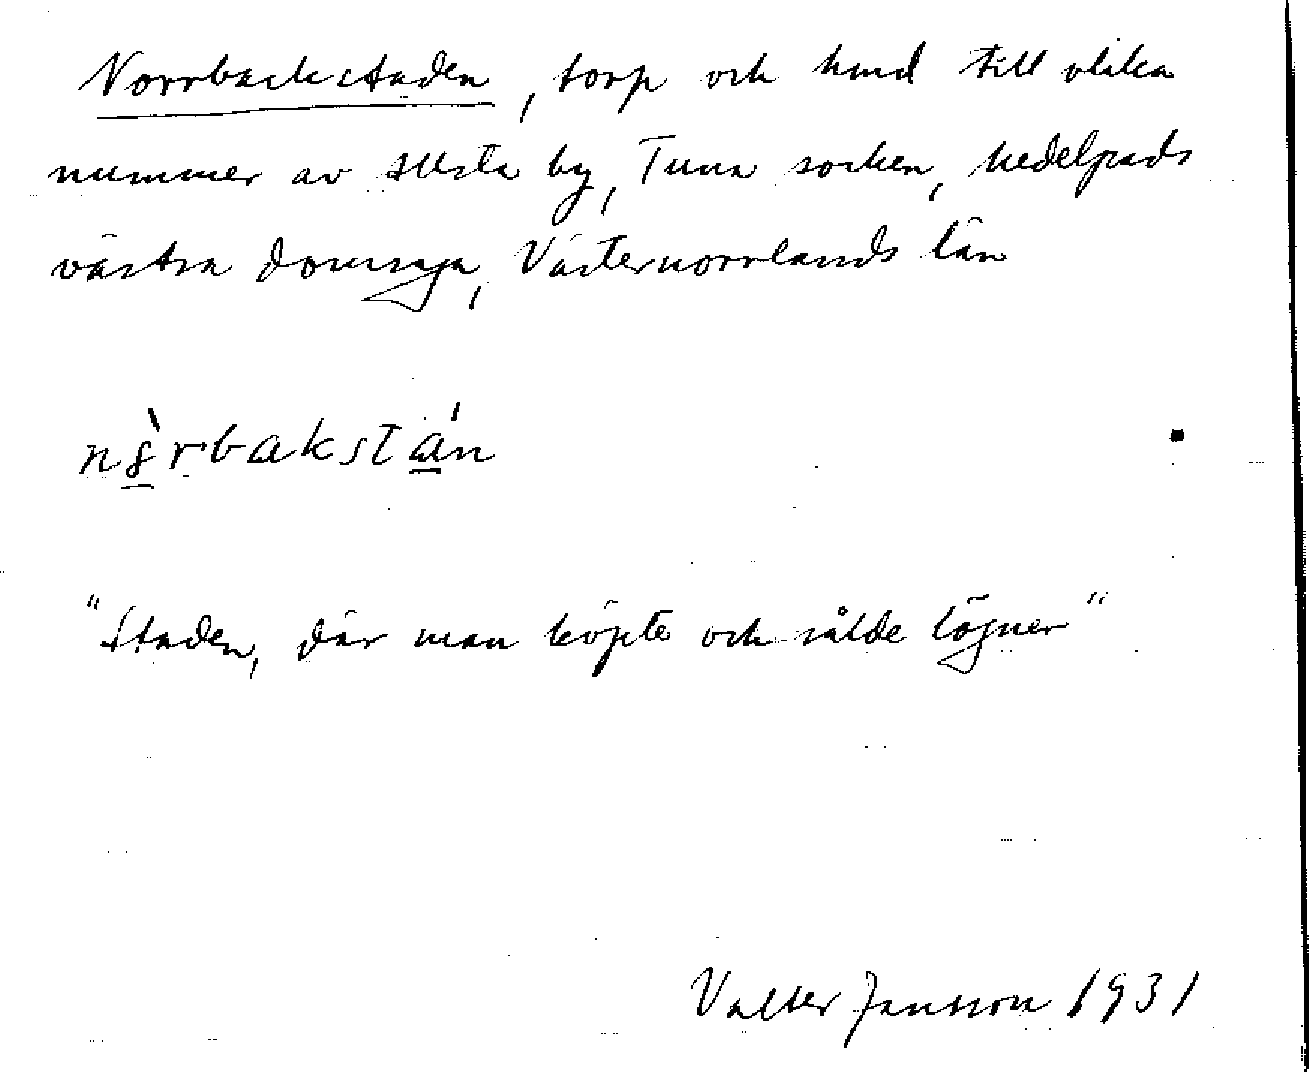 Norrbackstaden, torp och hmd till olika
nummer av Allsta by, Tuna socken, Medelpads
västra domsaga, Västernorrlands län
nȯ̀rbakstán
"Staden, där man köpte och sålde lögner"
Valter Jansson 1931